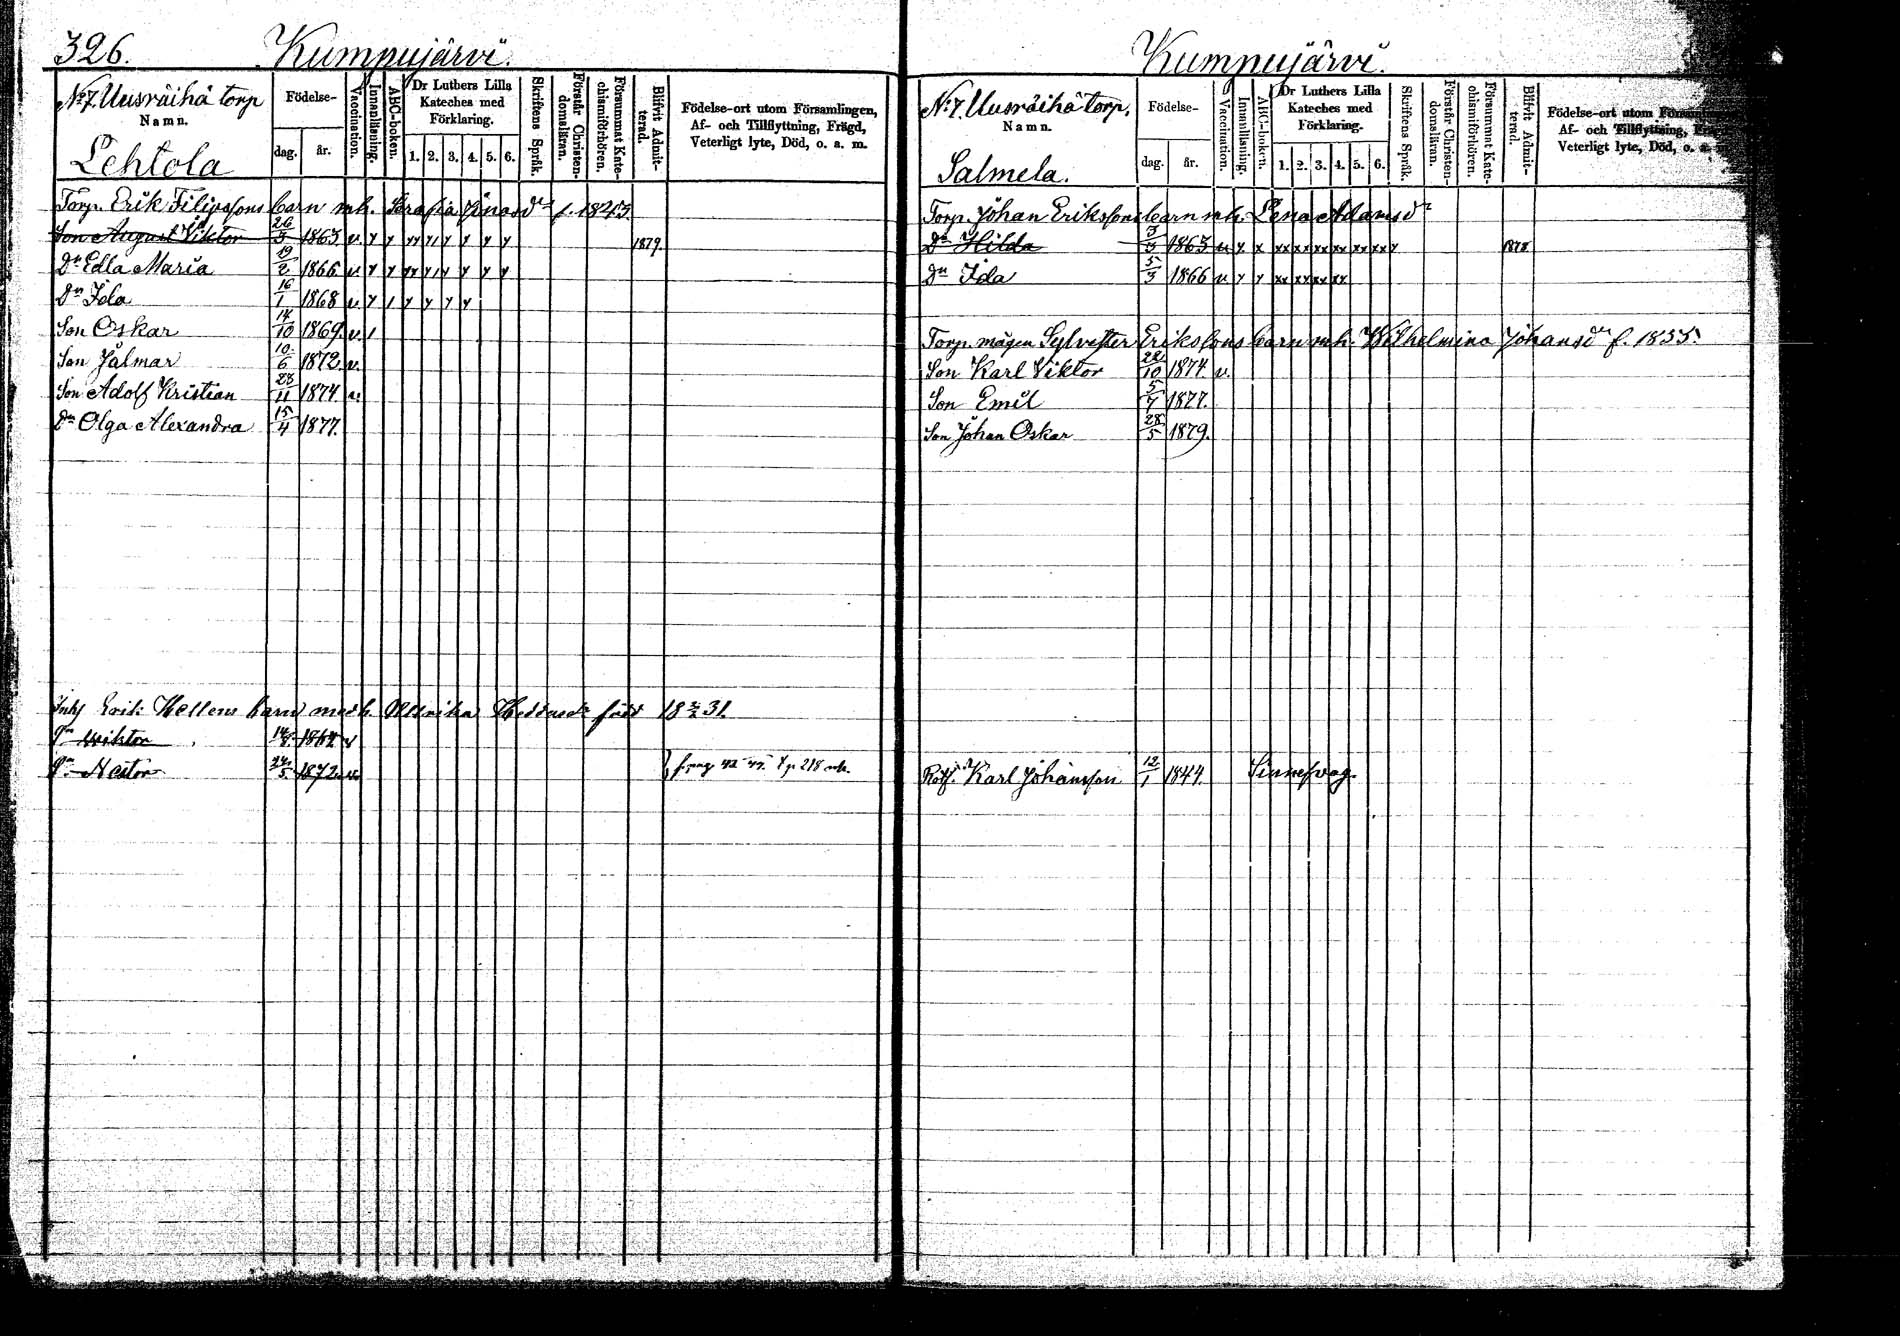 326. Kumpujärvi.
No 7. Uusräihä torp
Namn.
Lehtola
Födelse-
dag. år.
Vaccination.
Innanläsning.
ABC-boken.
Dr Luthers Lilla Kateches med Förklaring.
1. 2. 3. 4. 5. 6.
Skriftens Språk.
Förstår Christendomsläran.
Försummat Katechismiförhören.
Blifvit Admitterad.
Födelse-ort utom Församlingen,
Af- och Tillflyttning, Frägd,
Veterligt lyte, Död, o. a. m.
Torp. Erik Filipssons barn mh. Serafia Jonasdr f. 1843.
Son August Viktor 26/3 1863 v. 1879.
Dr Edla Maria 19/2 1866 v
Dr Ida 16/1 1868 v
Son Oskar 14/10 1869. v.
Son Jalmar 10/6 1872. v.
Son Adolf Kristian 28/11 1874 v.
Dr Olga Alexandra 15/4 1877.
Inhs Erik Hellens barn med h. Ullrika född 18 31.
Wiktor 1864 v
Nestor 24/5 1872. v. p 218
Kumpujärvi.
No 7. Uusräihä torp.
Namn.
Salmela.
Födelse-
dag. år.
Vaccination.
Innanläsning.
ABC-boken.
Dr Luthers Lilla Kateches med Förklaring.
1. 2. 3. 4. 5. 6.
Skriftens Språk.
Förstår Christendomsläran.
Försummat Katechismiförhören.
Blifvit Admitterad.
Födelse-ort utom
Af- och Tillflyttning,
Veterligt lyte, Död, o. a. m.
Torp. Johan Erikssons barn mh. Lena Adamsdr
Dr Hilda 3/3 1863 v 1878
Dr Ida 5/3 1866 v
Torp. mågen Sylvester Erikssons barn mh. Wilhelmina Johansdr f. 1855.
Son Karl Viktor 22/10 1874 v.
Son Emil 5/7 1877.
Son Johan Oskar 28/5 1879.
Karl Johansson 12/1 1844. Sinnesvag.